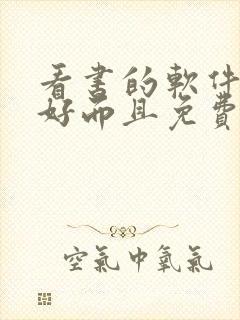 看書的軟件
好而且免費
空氣中氧氣